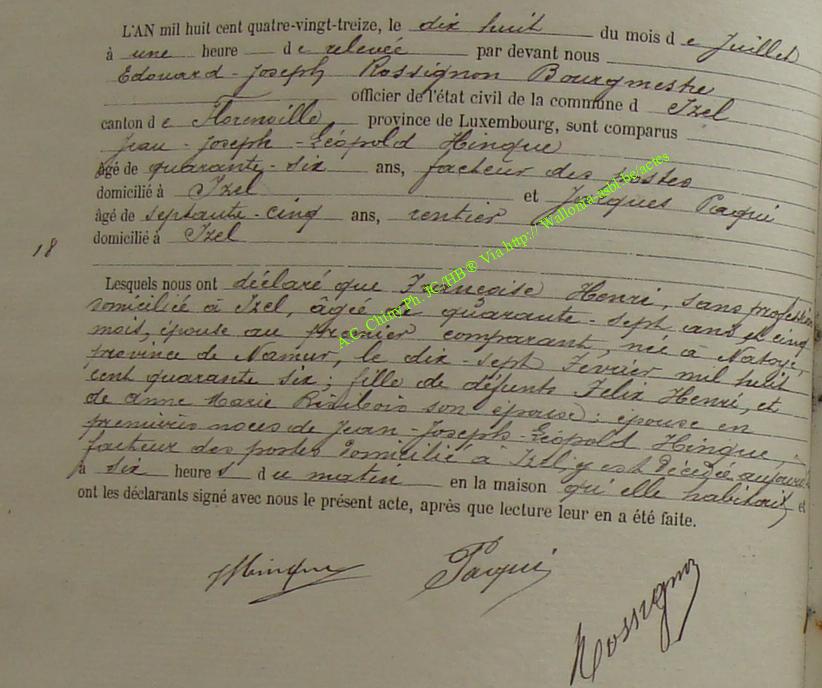 L'AN mil huit cent quatre-vingt-treize, le dix huit du mois de Juillet
à une heure de relevée par devant nous
Edouard-Joseph Rossignon Bourgmestre
officier de l'état civil de la commune d Izel
canton de Florenville, province de Luxembourg, sont comparus
Jean-Joseph-Léopold Hinque
âgé de quarante-six ans, facteur des postes
domicilié à Izel et Jacques Paqui
âgé de septante-cinq ans, rentier
domicilié à Izel
18
Lesquels nous ont déclaré que Françoise Henri, sans profession
domiciliée à Izel, âgée de quarante-sept ans et cinq
mois, épouse au premier comparant, née à Natoye,
province de Namur, le dix-sept Février mil huit
cent quarante six; fille de défunts Felix Henri, et
de Anne Marie son épouse; épouse en
premières noces de Jean-Joseph-Léopold Hinque,
facteur des postes domicilié à Izel, y est décédée aujourd'hui
à six heures du matin en la maison qu'elle habitait, et
ont les déclarants signé avec nous le présent acte, après que lecture leur en a été faite.
JHinque Paqui
Rossignon
A.C. Chiny Ph. JC/HB® Via http:// Wallonia-asbl-be/actes